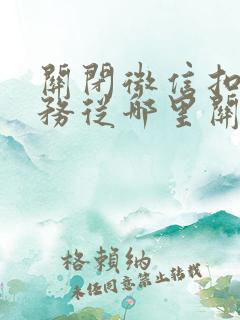 關閉微信扣
務從哪里關
格賴納
未經同意禁止轉載